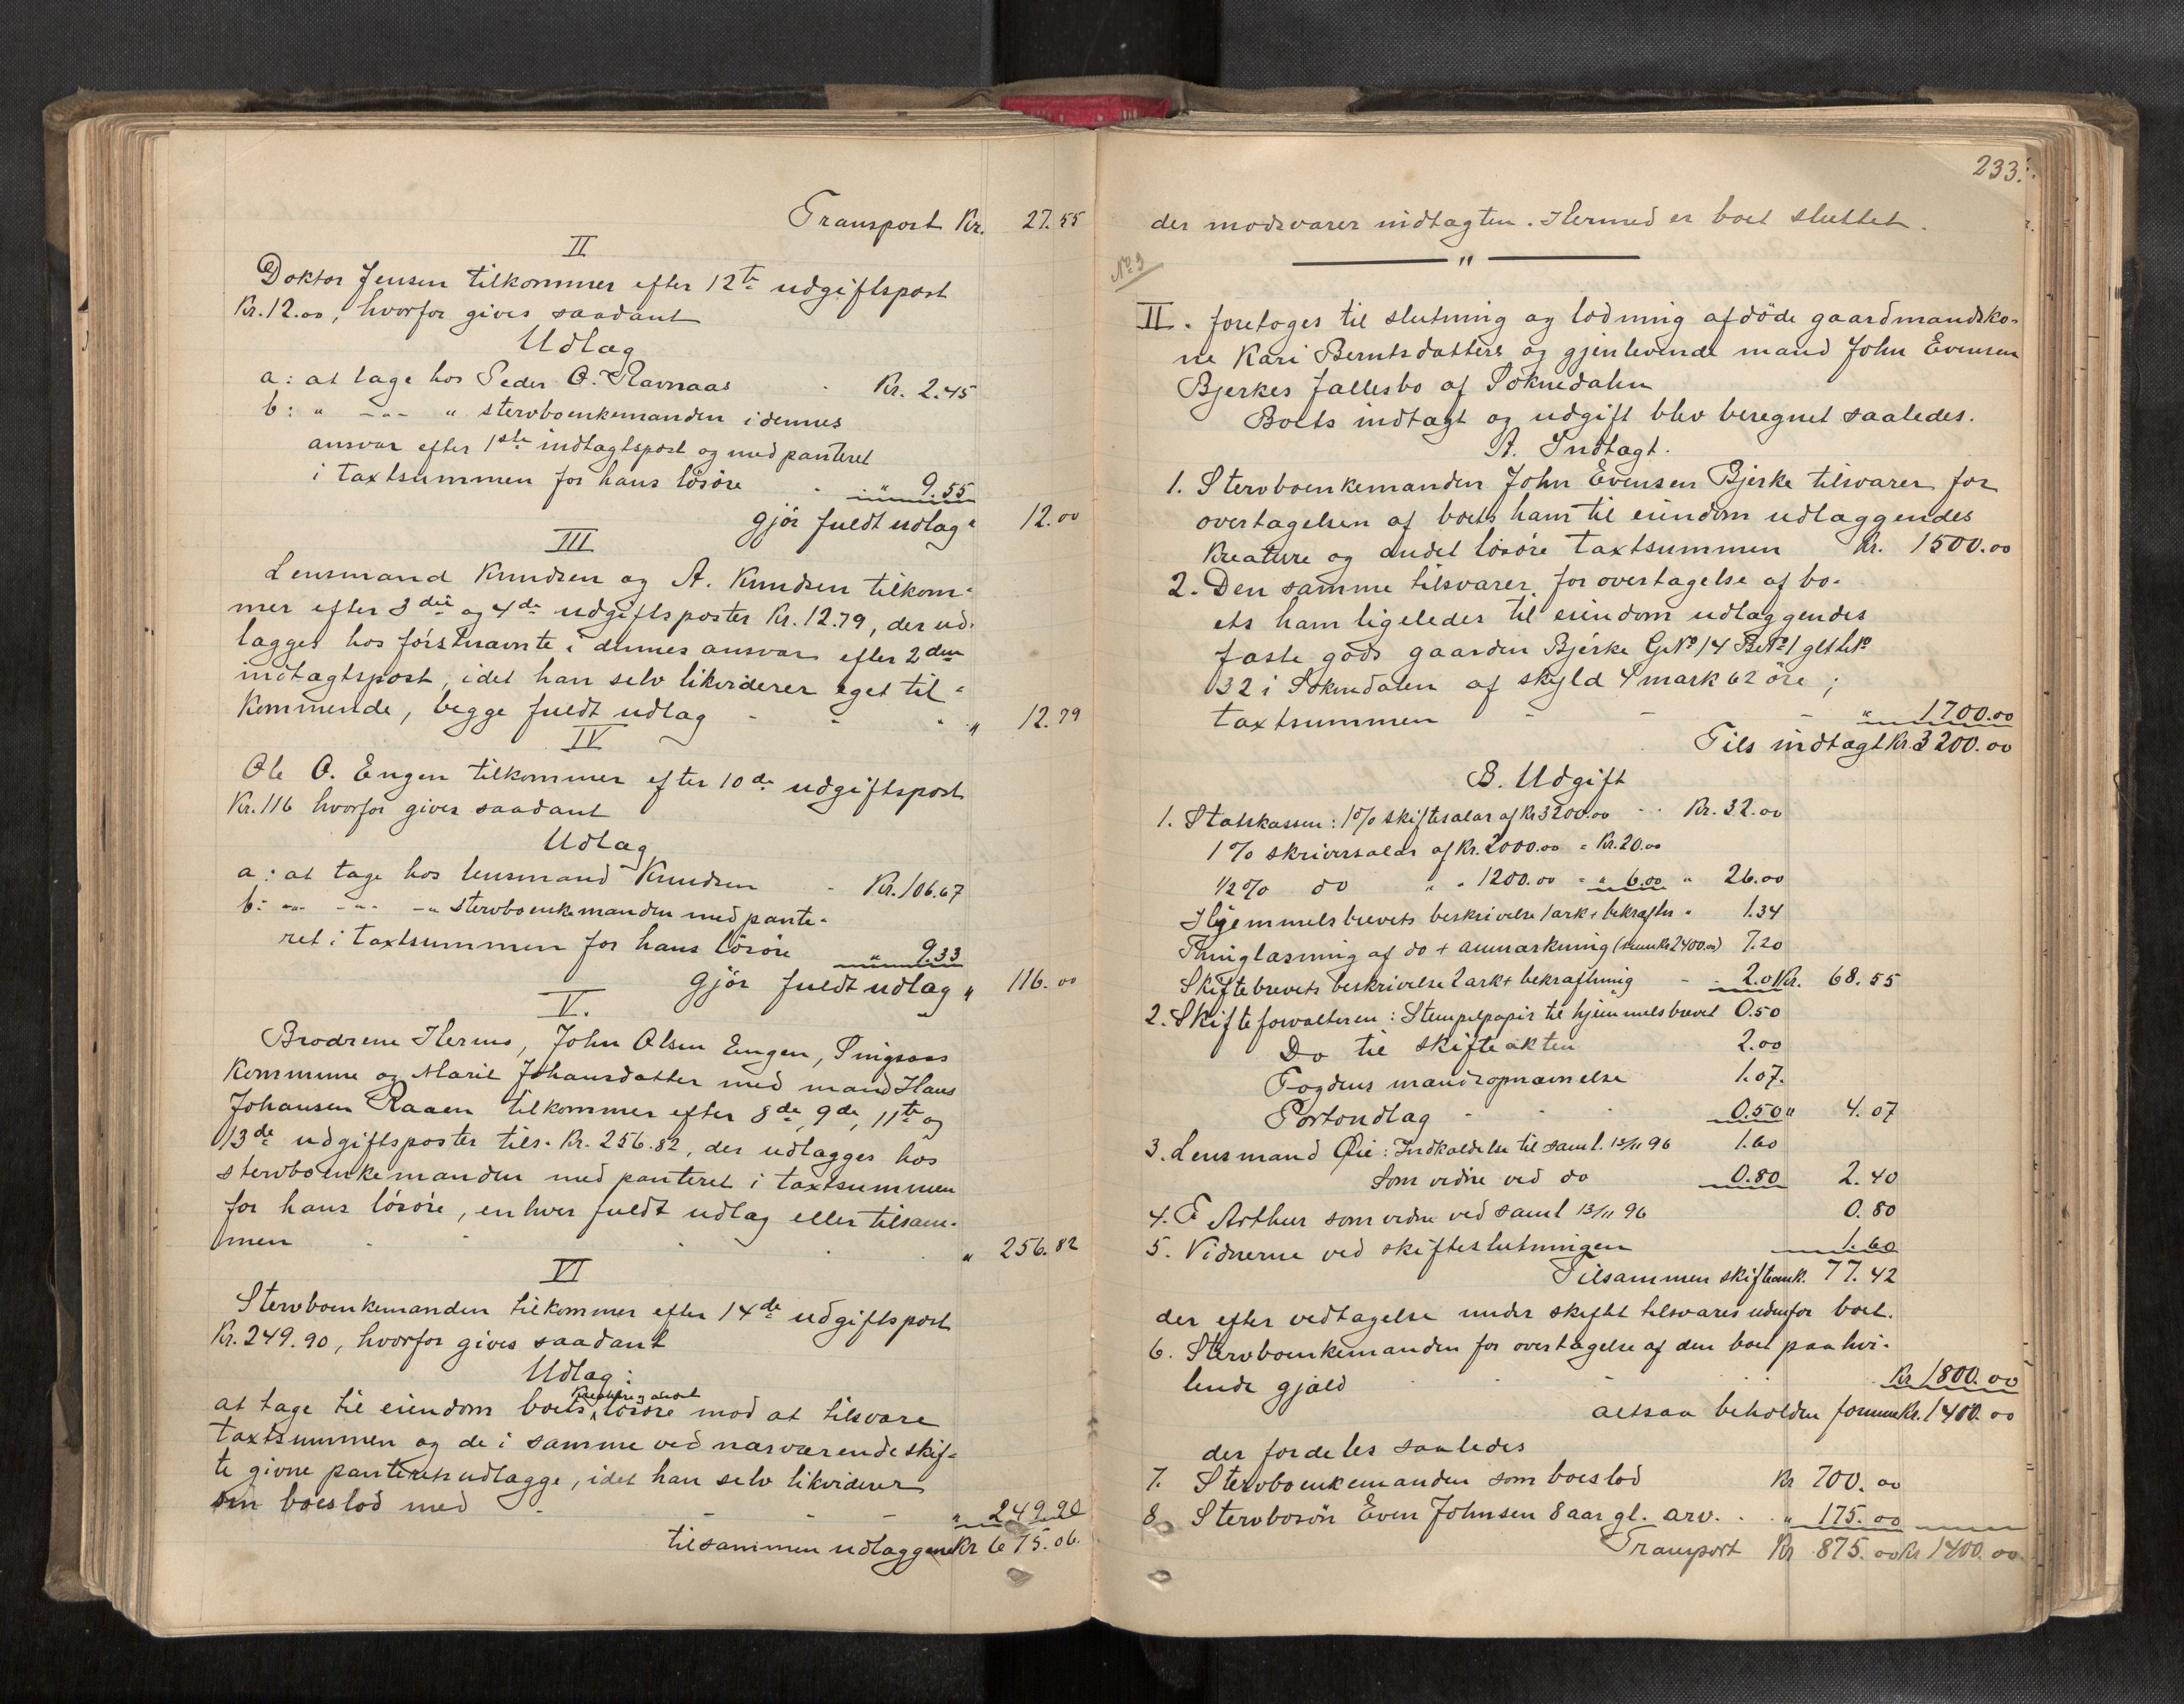 Transport Kr. 27.55
II
Doktor Jensen tilkommer efter 12te udgiftspost
Kr. 12.00, hvorfor gives saadant
Udlæg
a: at tage hos Peder O. Ravnaas - Kr. 2.45
b: " -"- " stervboenkemanden i dennes
ansvar efter 1ste indtægtspost og med panteret
i taxtsummen for hans lösöre - " 9.55
gjör fuldt udlæg " 12.00
III
Lensmand Knudsen og A. Knudsen tilkom-
mer efter 3die og 4de udgiftsposter Kr. 12.79, der ud-
lægges hos förstnævnte i dennes ansvar efter 2den
indtægtspost, idet han selv likviderer eget til-
kommende, begge fuldt udlæg - - - " 12.79
IV
Ole O. Engen tilkommer efter 10de udgiftspost
Kr. 116 hvorfor gives saadant
Udlæg
a: at tage hos lensmand Knudsen - Kr. 106.67
b: -"- -"- -"- stervboenkemanden med pante-
ret i taxtsummen for hans lösöre " 9.33
gjör fuldt udlæg " 116.00
V.
Brödrene Hermo, John Olsen Engen, Singsaas
kommune og Marit Johansdatter med mand Hans
Johansen Raaen tilkommer efter 8de, 9de, 11te og
13de udgiftsposter tils. Kr. 256.82, der udlægges hos
stervboenkemanden med panteret i taxtsummen
for hans lösöre, enhver fuldt udlæg eller tilsam-
men . . . . " 256.82
VI
Stervboenkemanden tilkommer efter 14de udgiftspost
Kr. 249.90, hvorfor gives saadant
Udlæg:
kreature og andet
at tage til eiendom boets lösöre mod at tilsvare
taxtsummen og de i samme ved nærværende skif-
te givne panteretsudlægge, idet han selv likviderer
sin boeslod med - - - - " 249.90
tilsammen udlæggene Kr 675.06.
233.
der modsvarer indtægten. Hermed er boet sluttet.
"
No 3
II. foretoges til slutning og lodning afdöde gaardmandsko-
ne Kari Berntsdatters og gjenlevende mand John Evensen
Bjerkes fællesbo af Soknedalen
Boets indtægt og udgift blev beregnet saaledes.
A. Indtægt.
1. Stervboenkemanden John Evensen Bjerke tilsvarer for
overtagelsen af boets ham til eiendom udlæggendes
kreature og andet lösöre taxtsummen Kr. 1500.00
2. Den samme tilsvarer for overtagelse af bo-
ets ham ligeledes til eiendom udlæggendes
faste gods gaarden Bjerke GNo 14 BNo 1 gl
32 i Soknedalen af skyld 4 mark 62 öre;
taxtsummen - - - " 1700.00
Tils indtægt Kr. 3200.00
B. Udgift
1. Statskassen: 1% skiftesalær af Kr 3200.00 - - Kr. 32.00
1% skriversalær af Kr. 2000.00 = Kr. 20.00
1/2% do " " 1200.00 = " 6.00 " 26.00
Hjemmelsbrevets beskrivelse 1 ark + bekræftn " 1.34
Thinglæsning af do + anmærkning (sum Kr 2400.00) 7.20
Skiftebrevets beskrivelse 2 ark + bekræftning - - 2.01 Kr. 68.55
2. Skifteforvalteren: Stempelpapir til hjemmelsbrevet 0.50
Do til skifteakten 2.00
Fogdens mandsopnævnelse 1.07.
Portoudlæg - - - 0.50 " 4.07
3. Lensmand Øie: Indkaldelse til saml. 13/11 96 1.60
Som vidne ved do 0.80 2.40
4. F Arthur som vidne ved saml 13/11 96 0.80
5. Vidnerne ved skifteslutningen 1.60
Tilsammen skifteomk. 77.42
der efter vedtagelse under skiftet tilsvares udenfor boet.
6. Stervboenkemanden for overtagelse af den boet paahvi-
lende gjæld . . . . Kr 1800.00
altsaa beholden formue Kr. 1400.00
der fordeles saaledes
7. Stervboenkemanden som boeslod Kr 700.00
8. Stervbosön Even Johnsen 8 aar gl. arv. . . " 175.00
Transport Kr 875.00 Kr 1400.00.